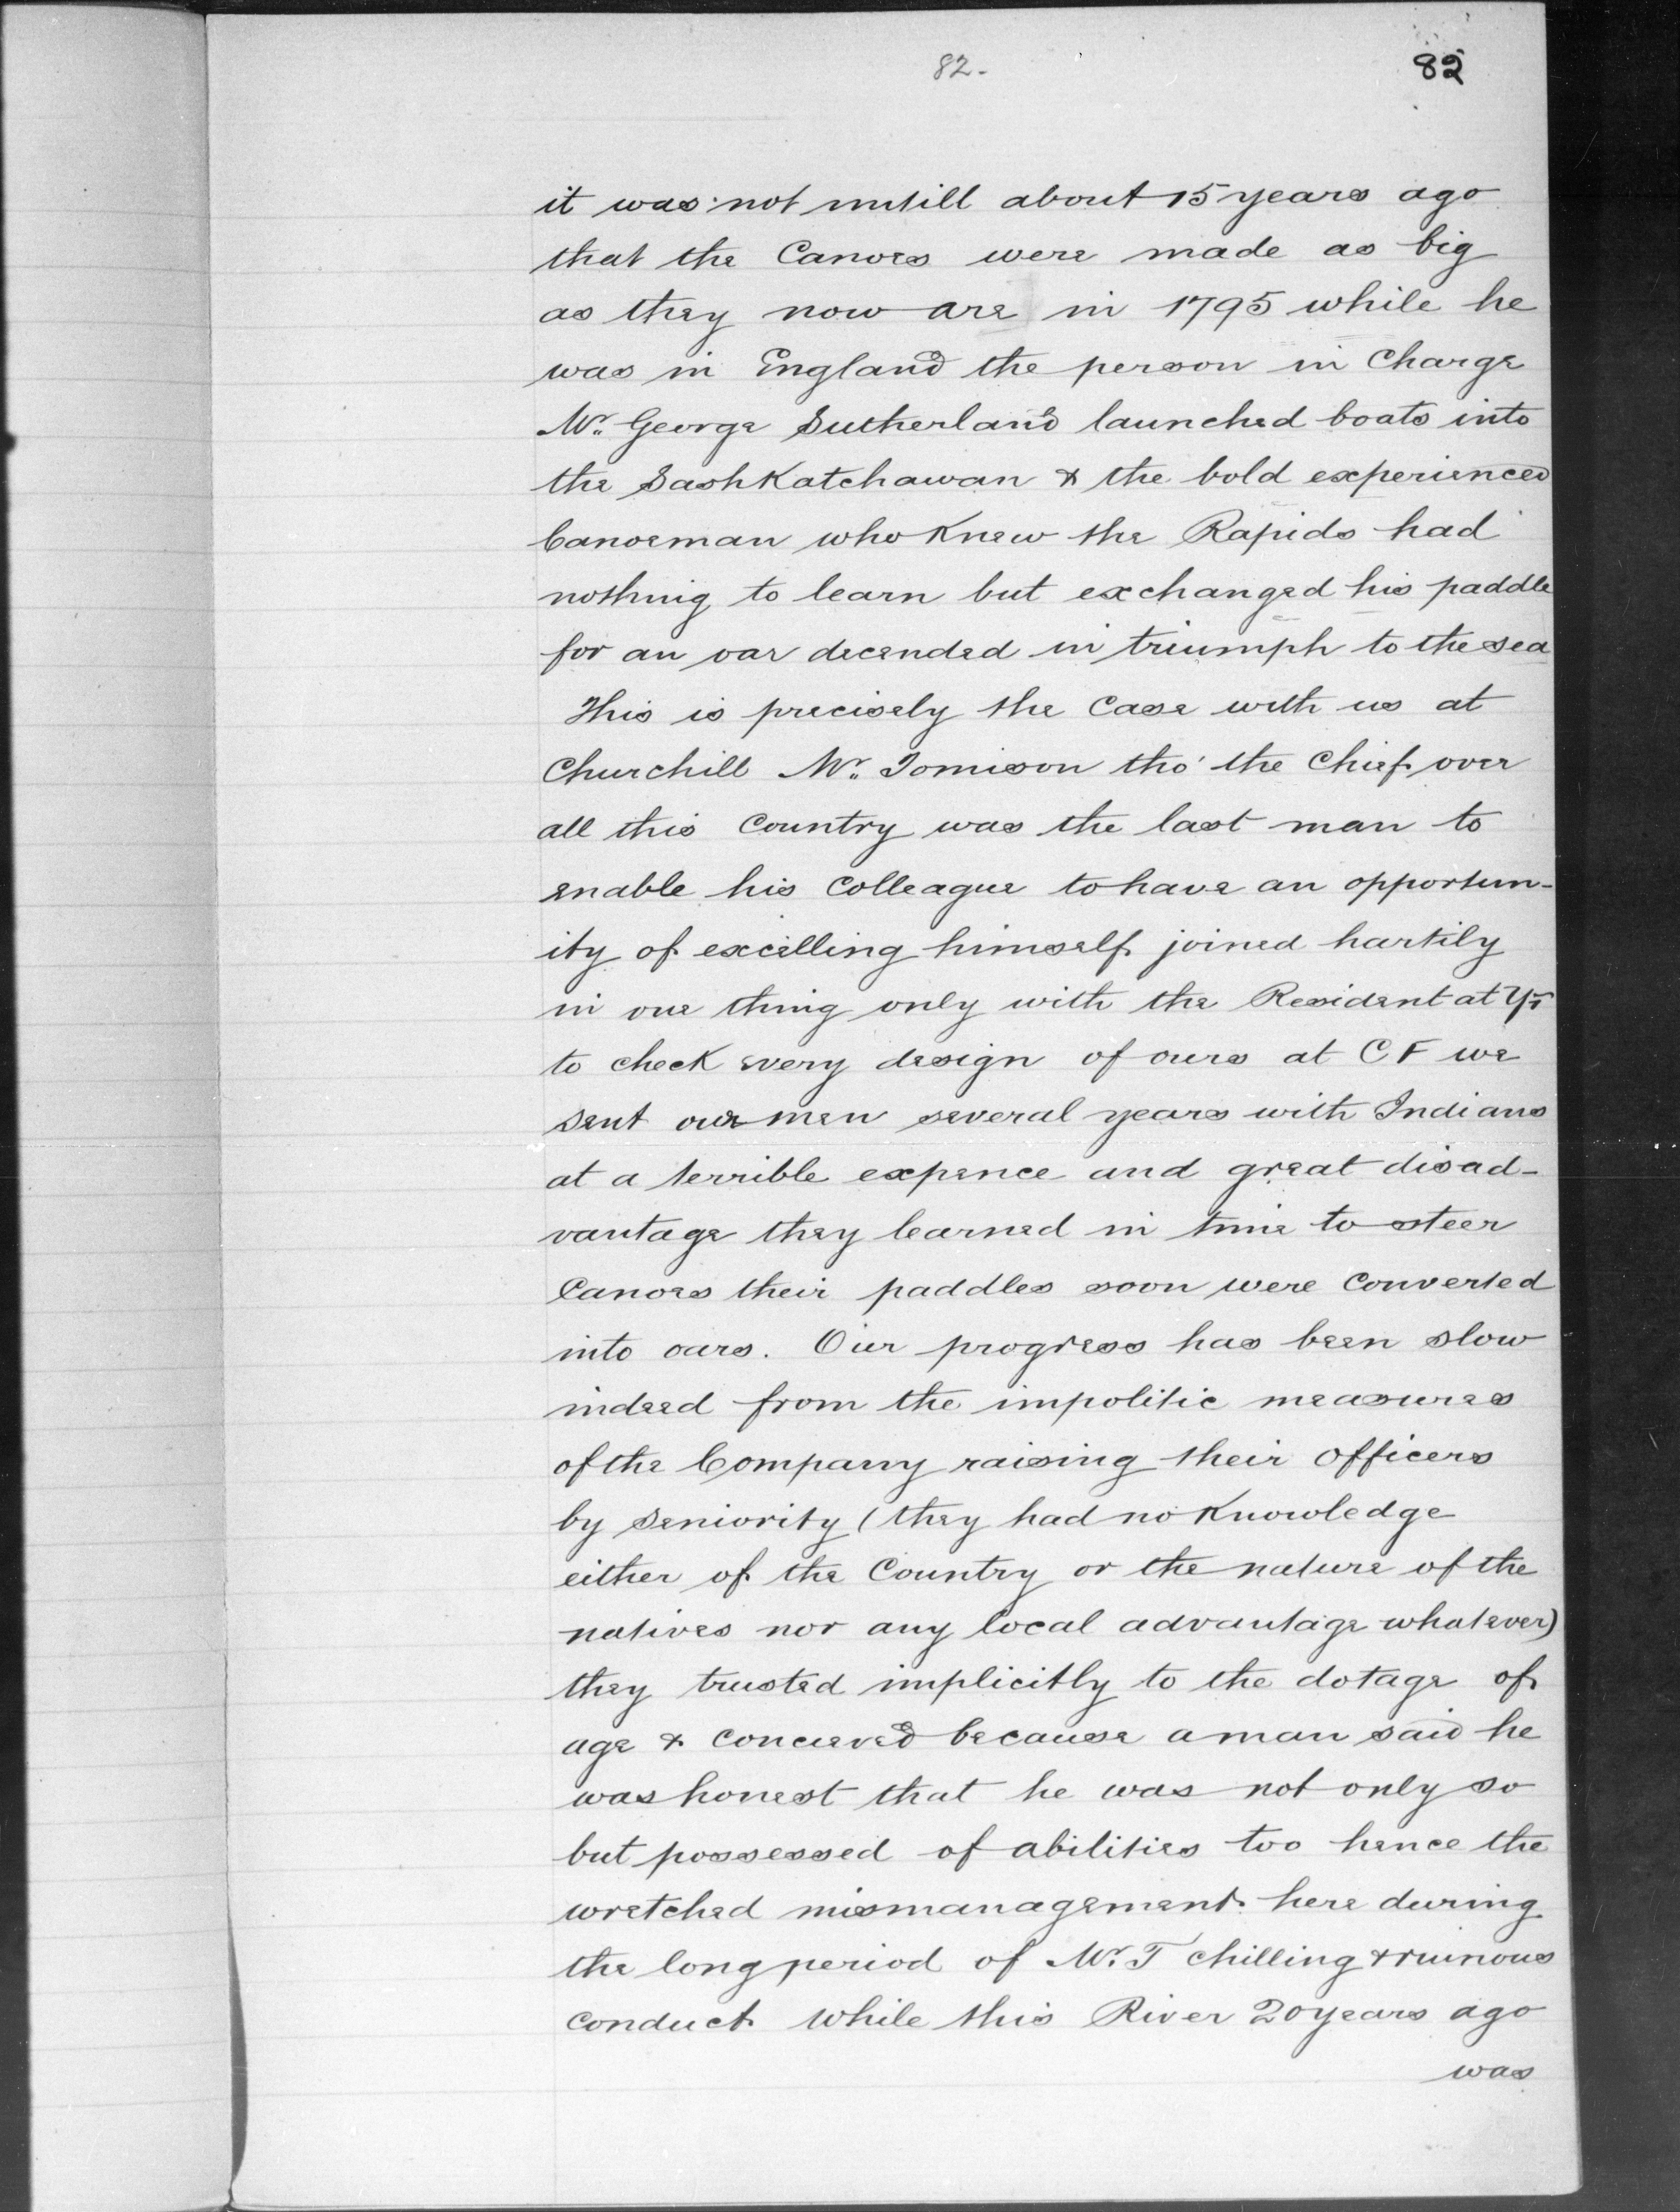 82.
82
it was not untill about 15 years ago
that the Canoes were made as big
as they now are in 1795 while he
was in England the person in Charge
Mr. George Sutherland launched boats into
the Sashkatchawan & the bold experienced
Canoeman who knew the Rapids had
nothing to learn but exchanged his paddle
for an oar decended in triumph to the sea
This is precisely the Case with us at
Churchill Mr. Tomison tho' the Chief over
all this Country was the last man to
enable his Colleague to have an opportun-
ity of excelling himself joined hartily
in one thing only with the Resident at YF
to check every design of ours at C F we
sent our men several years with Indians
at a terrible expence and great disad-
vantage they learned in time to steer
Canoes their paddles soon were Converted
into oars. Our progress has been slow
indeed from the impolitic measures
of the Company raising their officers
by seniority (they had no knowledge
either of the Country or the nature of the
natives nor any local advantage whatever)
they trusted implicitly to the dotage of
age & concieved because a man said he
was honest that he was not only so
but possessed of abilities too hence the
wretched mismanagement here during
the long period of Mr. T chilling & ruinous
conduct while this River 20 years ago
was